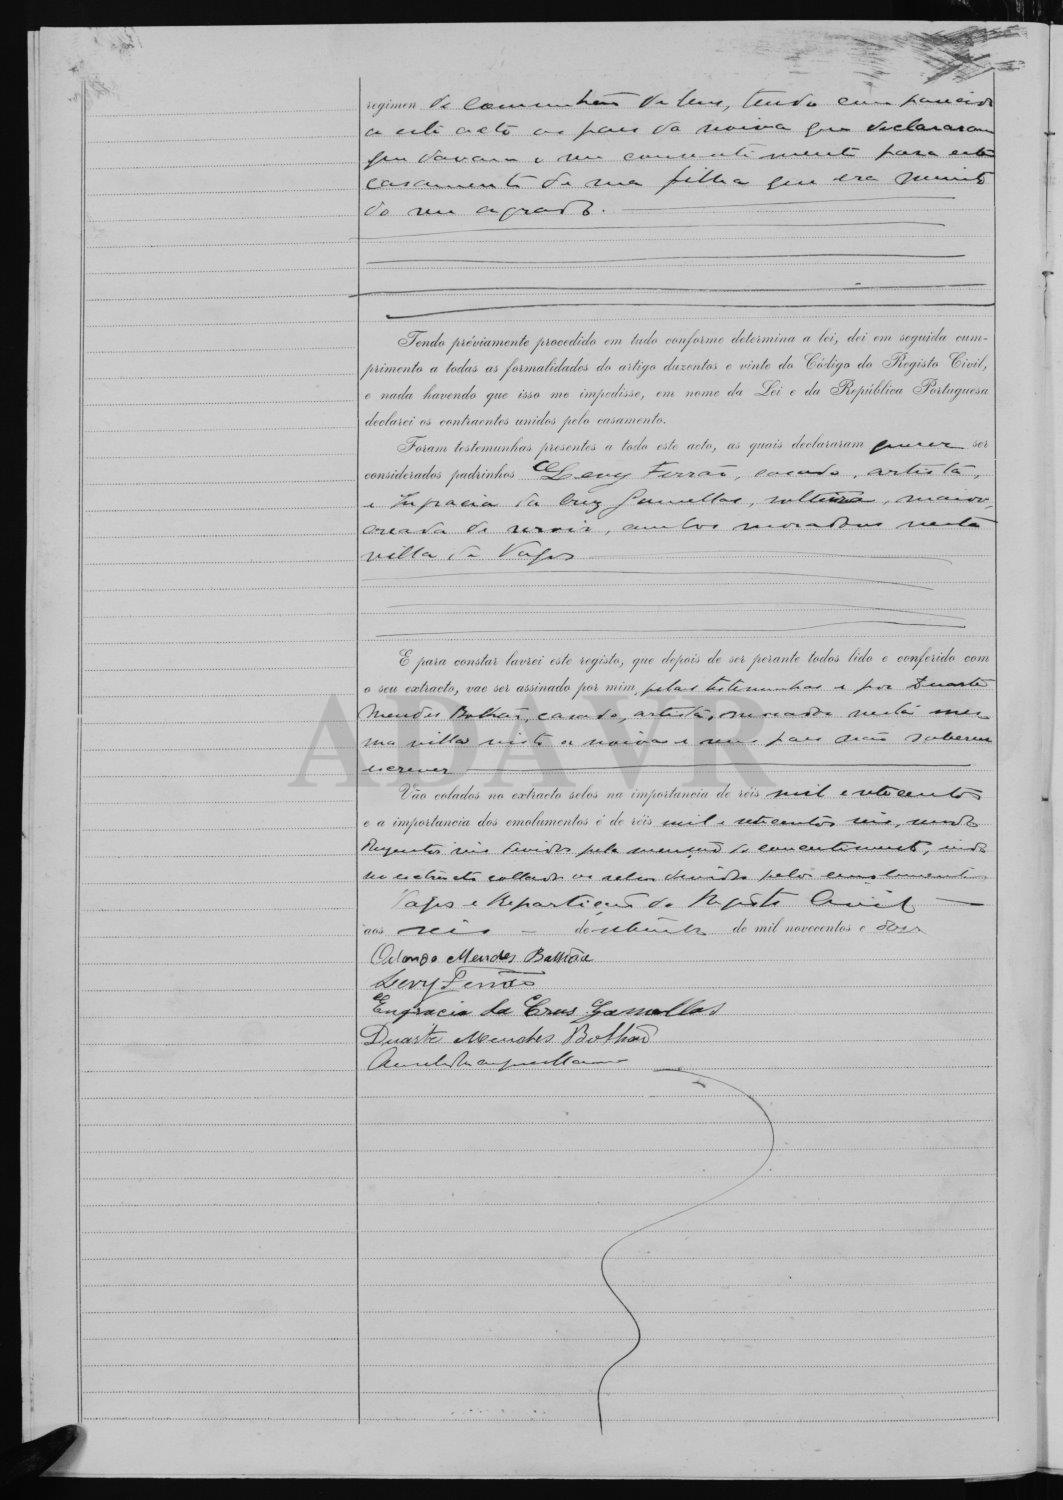 regimen de communhão de bens, tendo comparecido
a este acto os paes da noiva que declararam
que davam o seu consentimento para este
casamento de sua filha que era muito
do seu agrado.
Tendo préviamente procedido em tudo conforme determina a lei, dei em seguida cum-
primento a todas as formalidades do artigo duzentos e vinte do Código do Registo Civil,
e nada havendo que isso me impedisse, em nome da Lei e da República Portuguesa
declarei os contraentes unidos pelo casamento.
Foram testemunhas presentes a todo este acto, as quais declararam querer ser
considerados padrinhos Levy Ferrão, casado, artista,
e Engracia da Cruz Gamellas, solteira, maior,
creada de servir, ambos moradores nesta
villa de Vagos
E para constar lavrei este registo, que depois de ser perante todos lido e conferido com
o seu extracto, vae ser assinado por mim, pelas testemunhas e por Duarte
Mendes Bolhão, casado, artista, morador nesta mes-
ma villa visto a noiva e seus paes não saberem
escrever
Vão colados no extracto selos na importancia de réis mil e oitocentos
e a importancia dos emolumentos é de réis mil e setecentos reis, sendo
duzentos reis devidos pela menção do consentimento, indo
no extracto collados os selos devidos pelos emolumentos
Vagos e Repartição do Registo Civil
aos seis de de mil novecentos e doze
Mendes Bolhão
Levy Ferrão
Engracia da Crus Gamellas
Duarte Mendes Bolhão
ADAVR